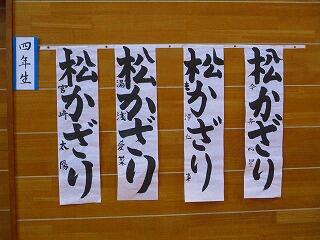 四年生
松かざり
宮崎太陽
松かざり
湯浅愛菜
松かざり
松かざり